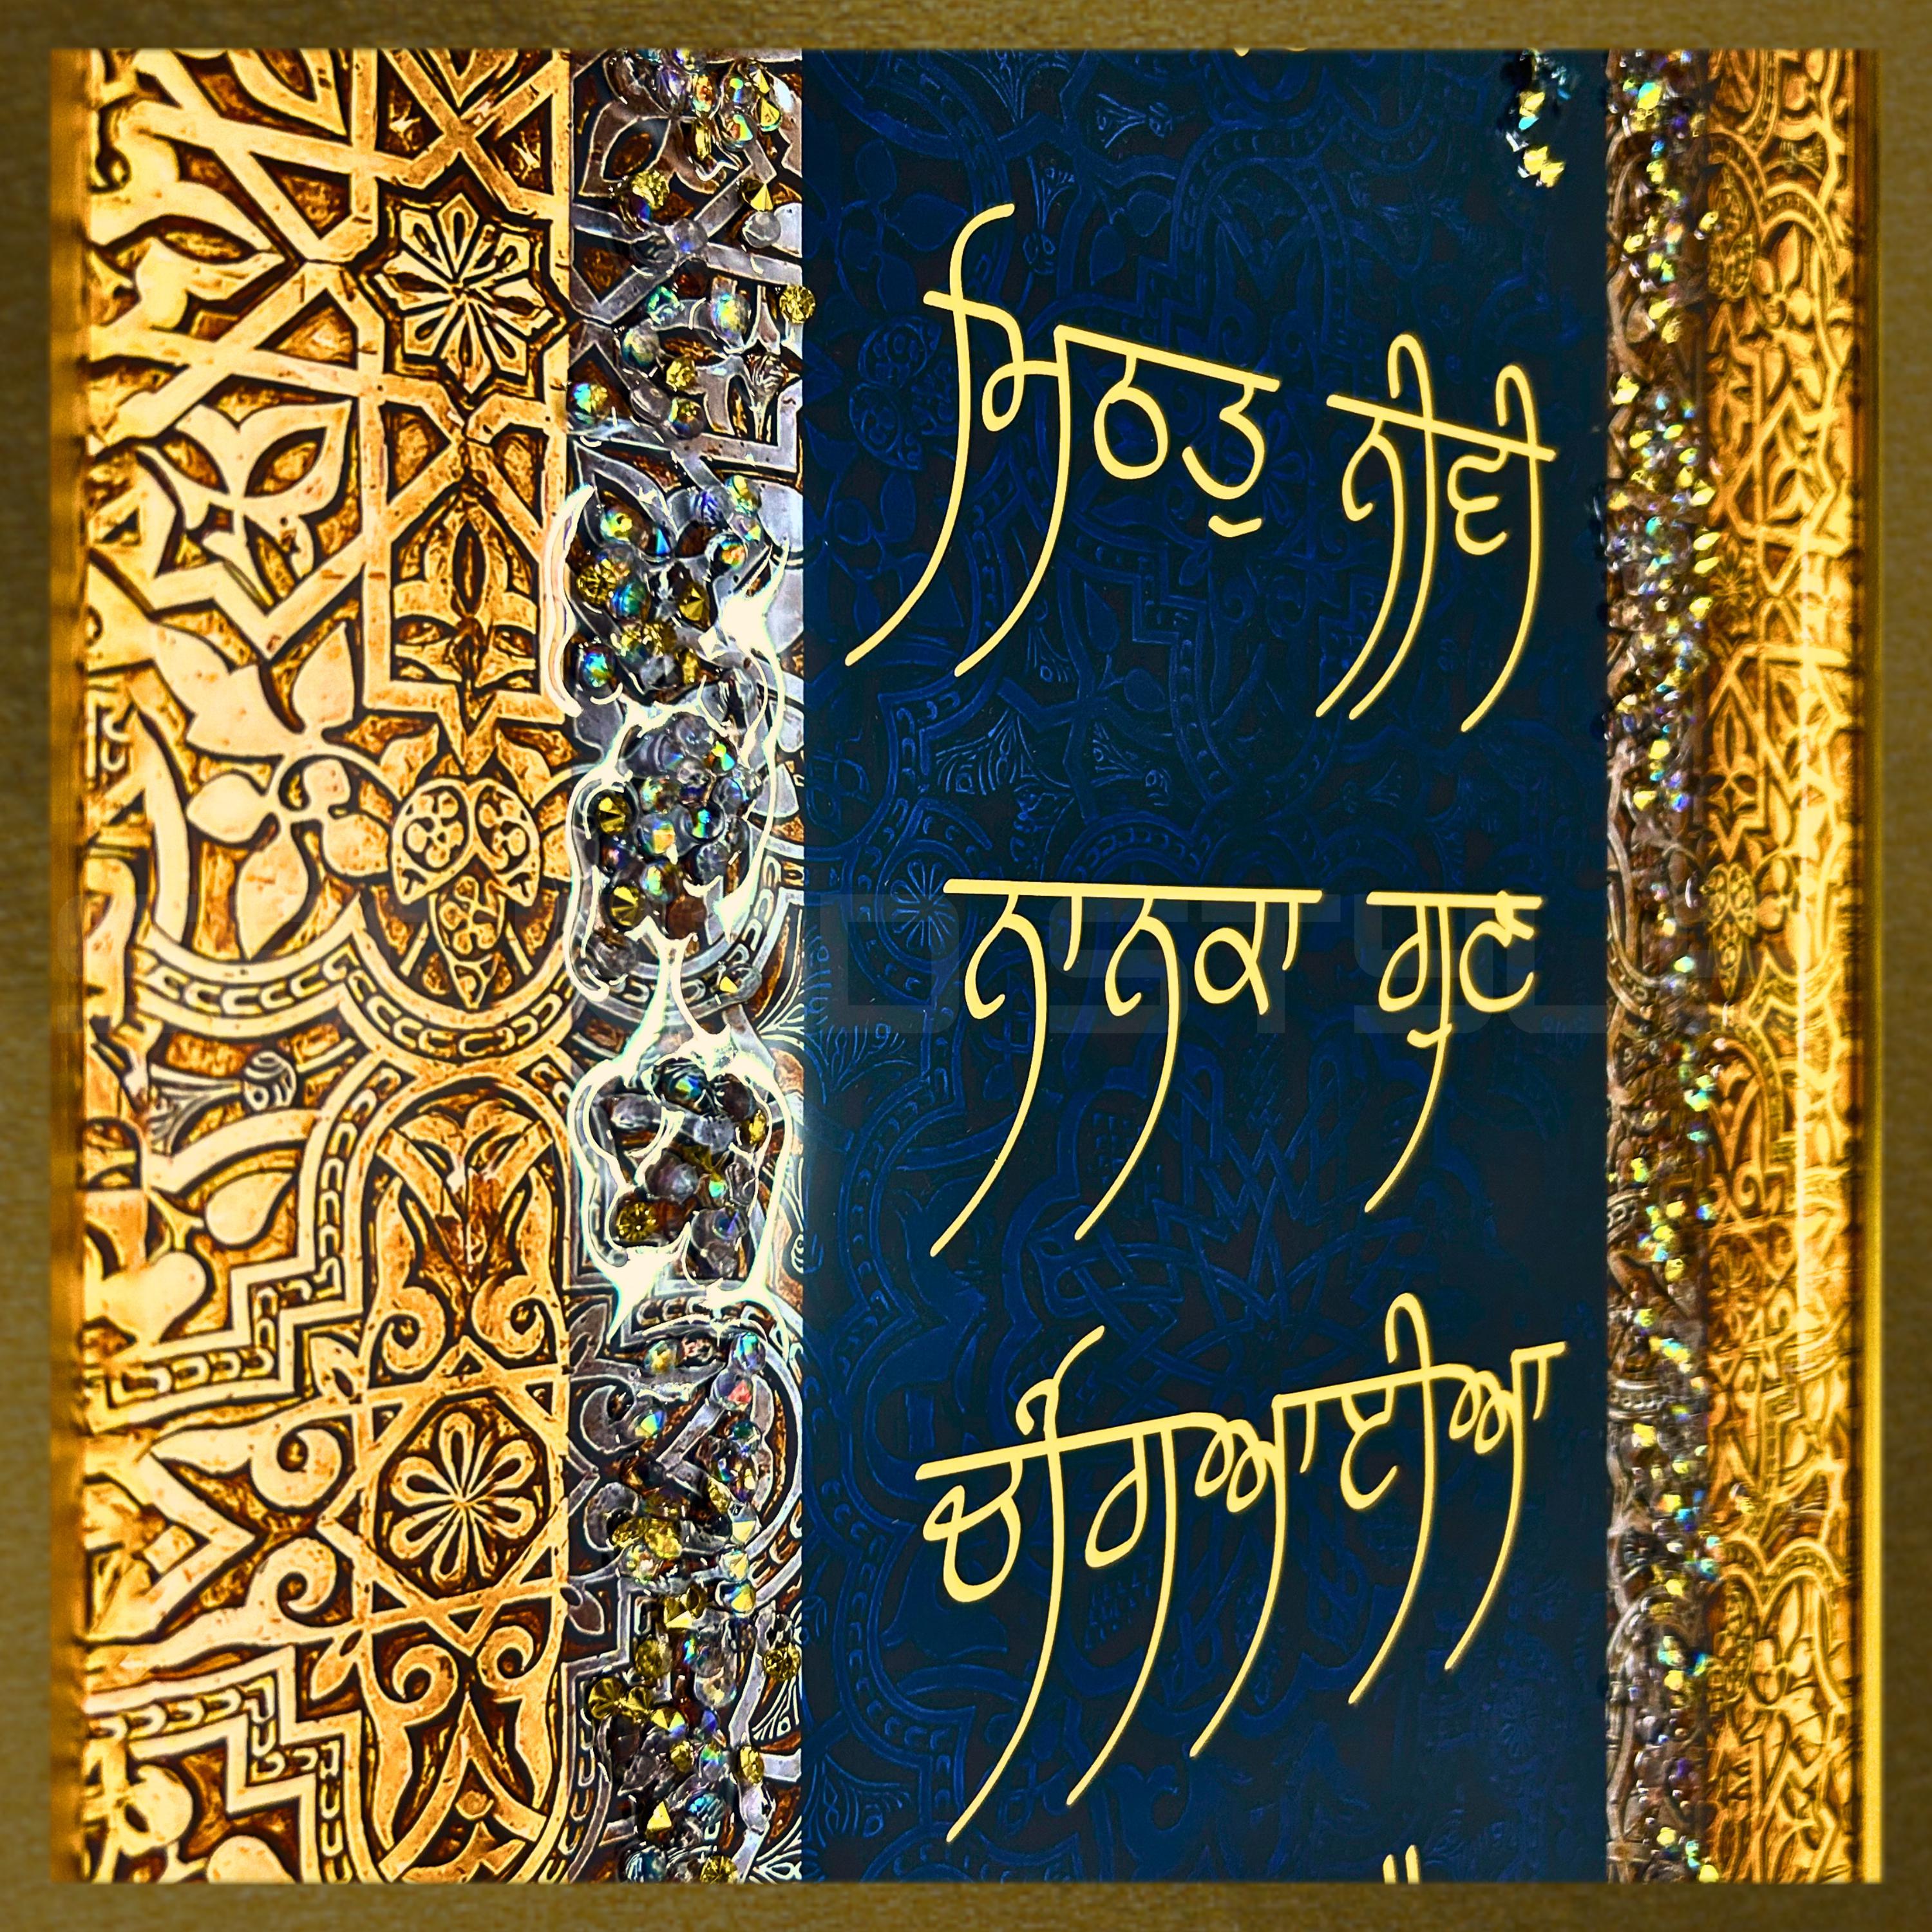 ਮਿਠਤੁ ਨੀਵੀ
ਨਾਨਕਾ ਗੁਣ
ਚੰਗਿਆਈਆ
॥